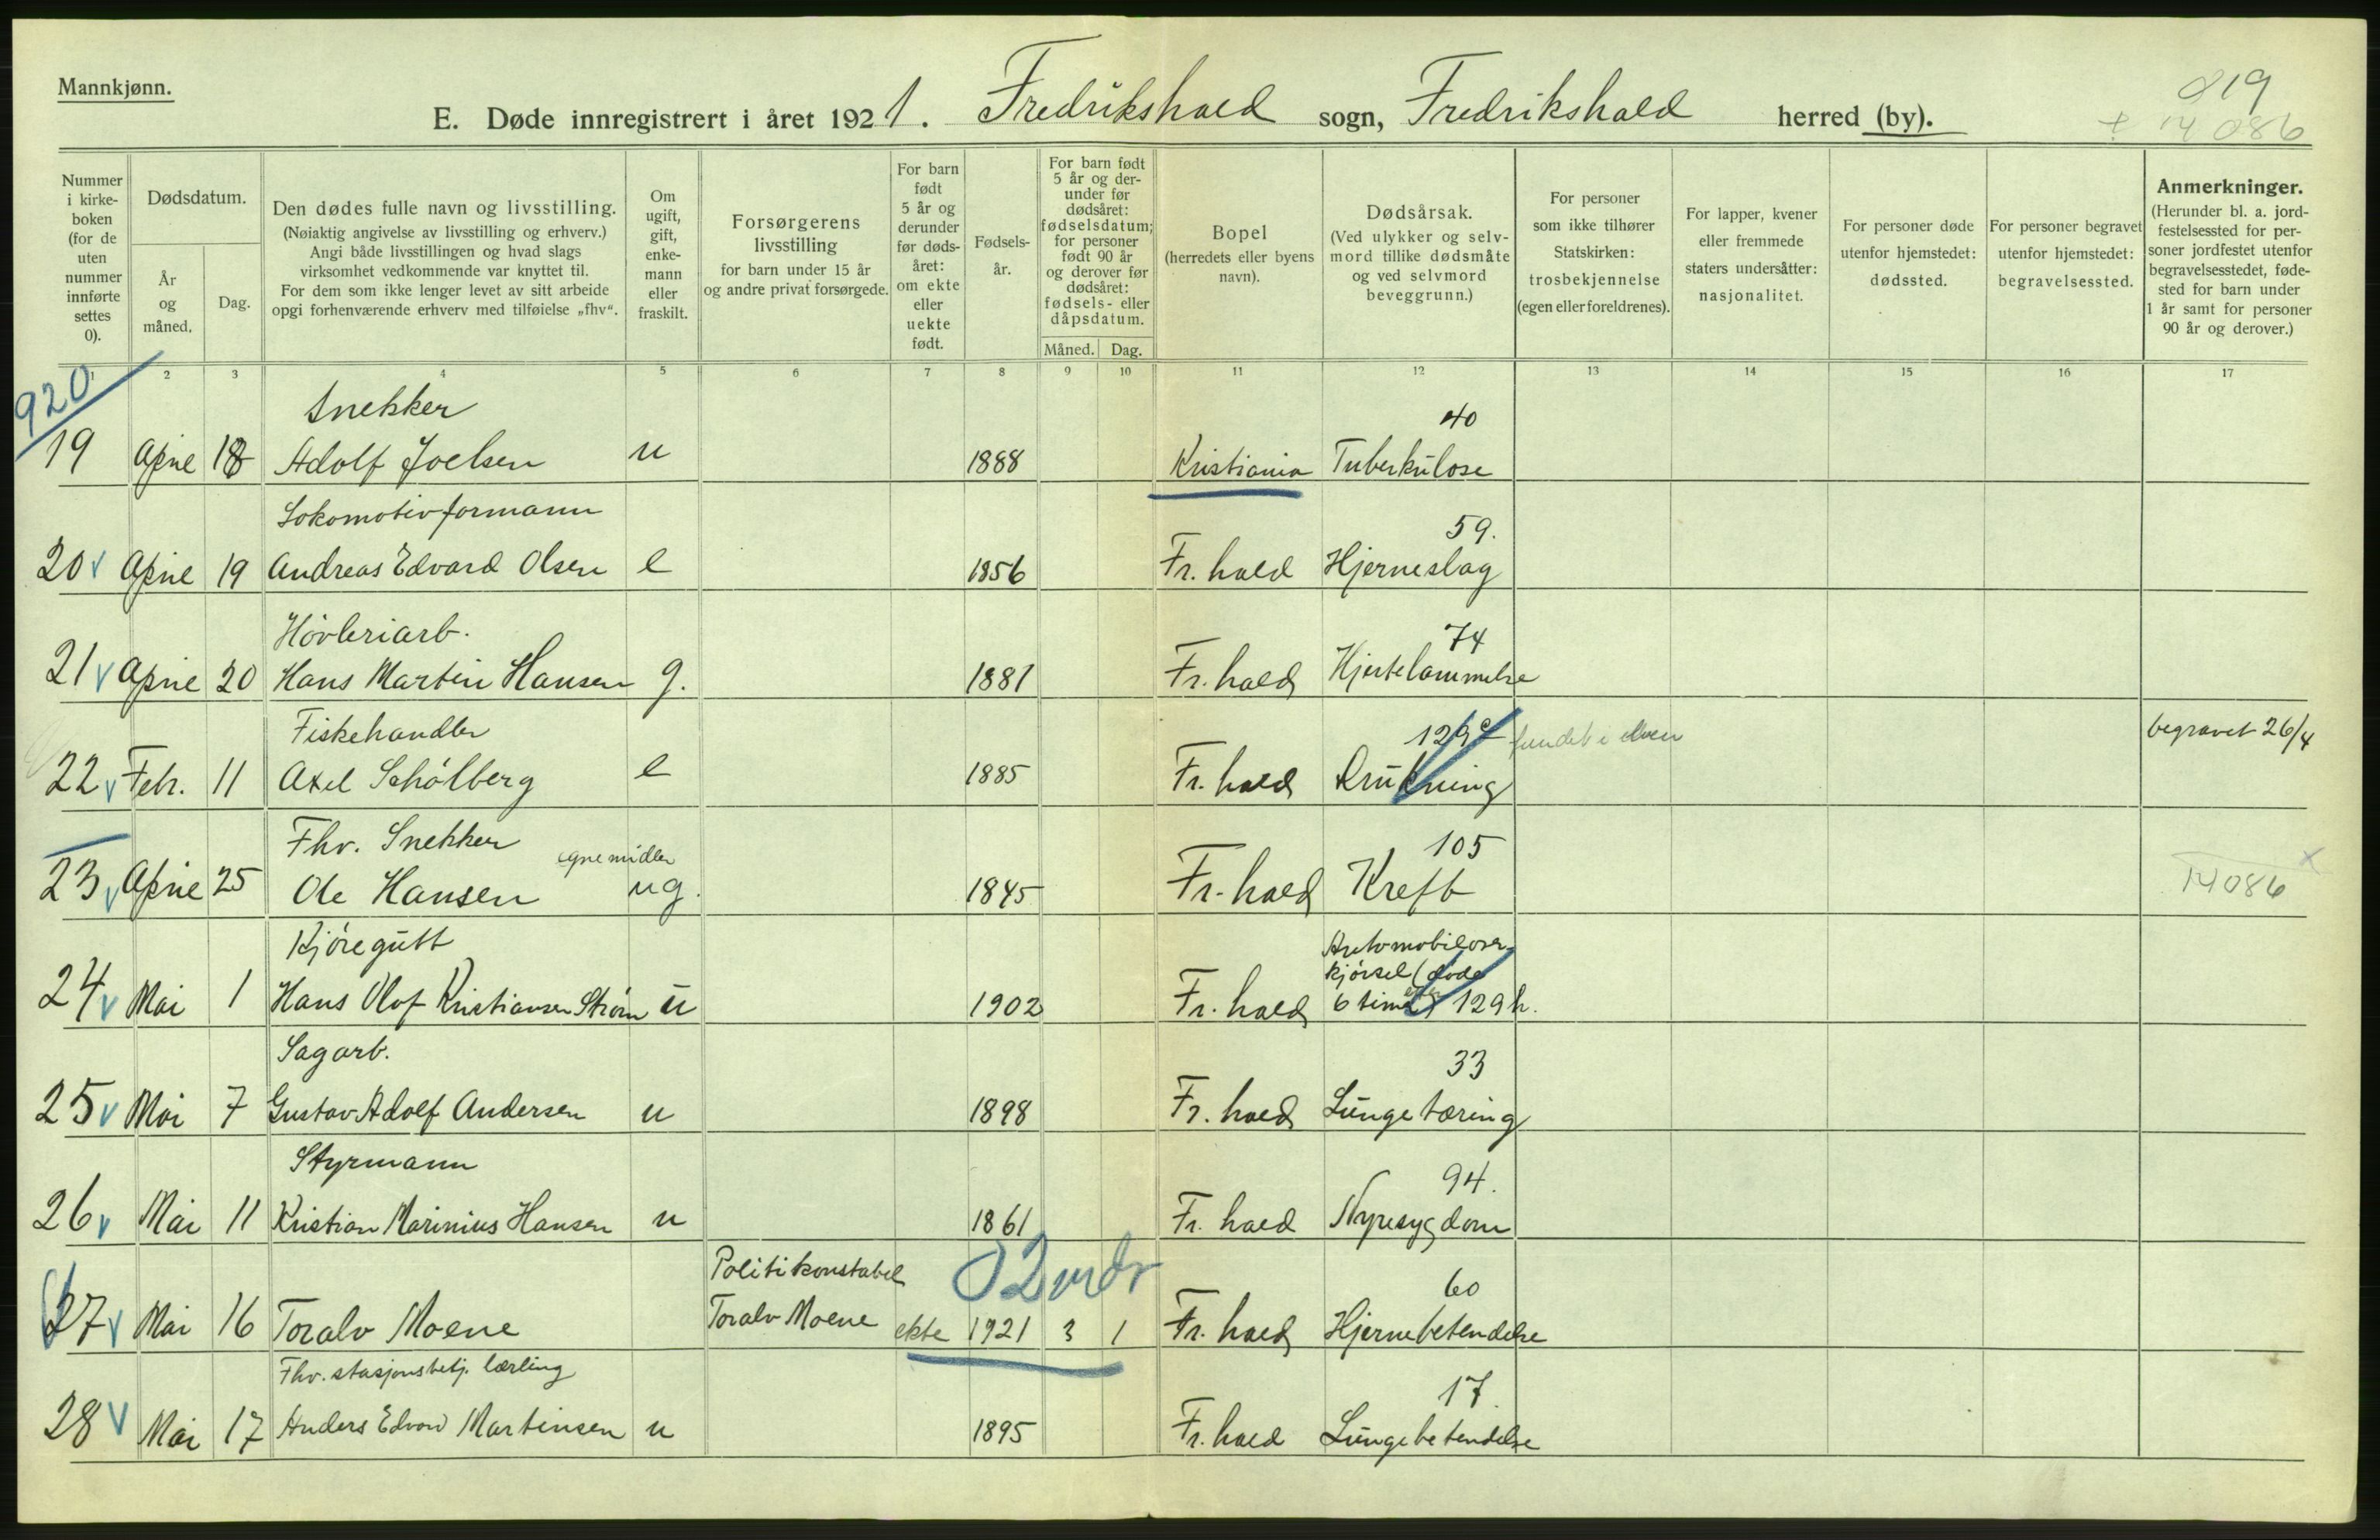 Mannkjønn.
E. Døde innregistrert i året 1921. Fredrikshald sogn, Fredrikshald herred (by).
819
+ 14086
Nummer i kirkeboken (for de uten nummer innførte settes 0).
Dødsdatum.
År og måned.
Dag.
Den dødes fulle navn og livsstilling.
(Nøiaktig angivelse av livsstilling og erhverv.)
Angi både livsstillingen og hvad slags
virksomhet vedkommende var knyttet til.
For dem som ikke lenger levet av sitt arbeide
opgi forhenværende erhverv med tilføielse „fhv“.
Om ugift, gift, enkemann eller fraskilt.
Forsørgerens livsstilling
for barn under 15 år
og andre privat forsørgede.
For barn født 5 år og derunder før dødsåret: om ekte eller uekte født.
Fødselsår.
For barn født 5 år og derunder før dødsåret: fødselsdatum; for personer født 90 år og derover før dødsåret: fødsels- eller dåpsdatum.
Måned. Dag.
Bopel
(herredets eller byens navn).
Dødsårsak.
(Ved ulykker og selvmord tillike dødsmåte og ved selvmord beveggrunn.)
For personer som ikke tilhører Statskirken: trosbekjennelse (egen eller foreldrenes).
For lapper, kvener eller fremmede staters undersåtter: nasjonalitet.
For personer døde utenfor hjemstedet: dødssted.
For personer begravet utenfor hjemstedet: begravelsessted.
Anmerkninger.
(Herunder bl. a. jordfestelsessted for personer jordfestet utenfor begravelsesstedet, fødested for barn under 1 år samt for personer 90 år og derover.)
2 3 4 5 6 7 8 9 10 11 12 13 14 15 16 17
920
Snekker 40
19 April 18 Adolf Joelsen u 1888 Kristiania Tuberkulose
Lokomotivformann 59.
20 v April 19 Andreas Edvard Olsen e 1856 Fr.hald Hjerneslag
Høvleriarb. 74
21 v April 20 Hans Martin Hansen g. 1881 Fr.hald Hjertelammelse
Fiskehandler 129c fundet i elven begravet 26/4
22 v Febr. 11 Axel Schølberg e 1885 Fr.hald Drukning
Fhv. Snekker egne midler 105
23 v April 25 Ole Hansen ug. 1845 Fr.hald Kreft 14086 x
Kjøregutt Automobilover
kjørsel (døde
24 v Mai 1 Hans Olof Kristiansen Strøm u 1902 Fr.hald 6 timer efter) 129h.
Sagarb. 33
25 v Mai 7 Gustav Adolf Andersen u 1898 Fr.hald Lungetæring
Styrmann 94.
26 v Mai 11 Kristian Marinius Hansen u 1861 Fr.hald Nyresygdom
Politikonstabel 2 mdr 60
27 v Mai 16 Toralv Moene Toralv Moene ekte 1921 3 1 Fr.hald Hjernebetendelse
Fhv. stasjonsbetj. lærling 17.
28 v Mai 17 Anders Edvard Martinsen u 1895 Fr.hald Lungebetendelse